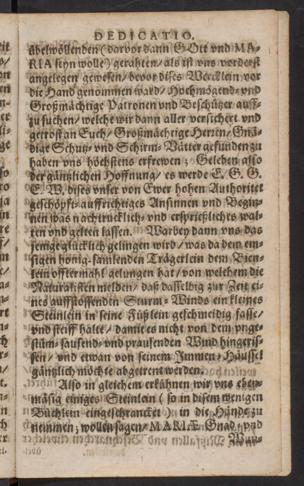 DEDICATIO.
übelwöllenden (darvor dann GOtt und MA-
RIA seyn wolle) gerahten/ als ist uns vorderst
angelegen gewesen/ bevor dises Wercklein vor
die Hand genommen ward/ Hochmögend- und
Großmächtige Patronen und Beschützer auff-
zusuchen/ welche wir dann aller versichert und
getrost an Euch/ Großmächtige Herren/ Gnä-
dige Schutz- und Schirm-Vätter gefunden zu
haben uns höchstens erfrewen; Geleben also
der gäntzlichen Hoffnung/ es werde E. G. G.
E. W. dises unser von Ewer hohen Authoritet
geschöpfft-auffrichtiges Ansinnen und Begin-
nen was nachtrucklich- und ersprießliches wal-
ten und gelten lassen. Warbey dann uns das
jenige glücklich gelingen wird/ was da dem em-
sigen honig-samlenden Trägerlein dem Bien-
lein offtermahl gelungen hat/ von welchem die
Naturalisten melden/ daß dasselbig zur Zeit ei-
nes auffstossenden Sturm-Winds ein kleines
Steinlein in seine Füßlein geschmeidig fasse/
und steiff halte/ damit es nicht von dem unge-
stüm-sausend- und prausenden Wind hingeris-
sen/ und etwan von seinem Immen-Häussel
gäntzlich möchte abgetrent werden.
Also in gleichem erkühnen wir uns eben-
mäsig einiges Steinlein (so in disem wenigen
Büchlein eingeschrancket) in die Hände zu
nemmen; wollen sagen/ MARIÆ Gnad- und
Wun-